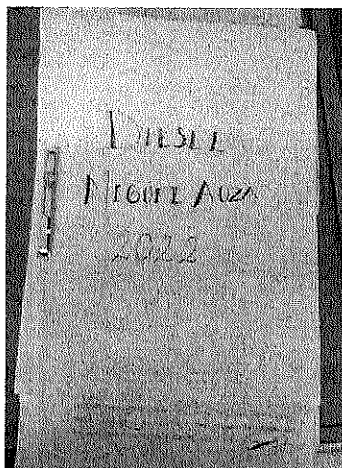 DIESEL
MIGUEL AUZA
2022